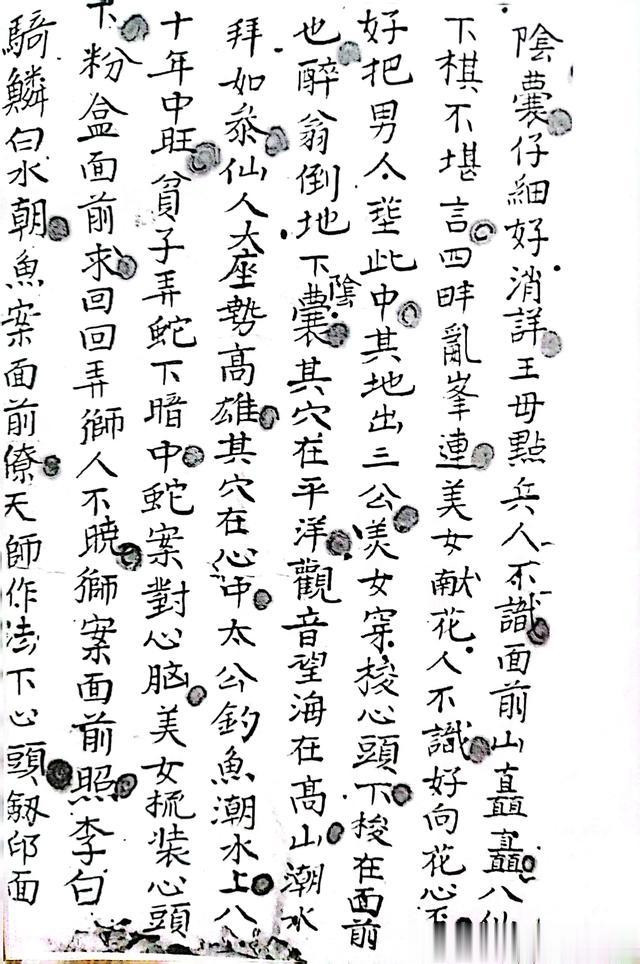 陰囊仔細好消詳王母點兵人不識面前山矗矗八仙
下棋不堪言四畔亂峯連美女献花人不識好向花心
好把男人塟此中其地出三公美女穿梭心頭下梭在面前
也醉翁倒地下陰囊其穴在平洋觀音望海在高山潮水
拜如叅仙人大座勢高雄其穴在心中太公釣魚潮水上八
十年中旺貧子弄蛇下暗中蛇案對心脑美女梳装心頭
下粉盒面前求回回弄獅人不曉獅案面前照李白
騎鱗白水朝魚案面前僚天師作法下心頭劔印面